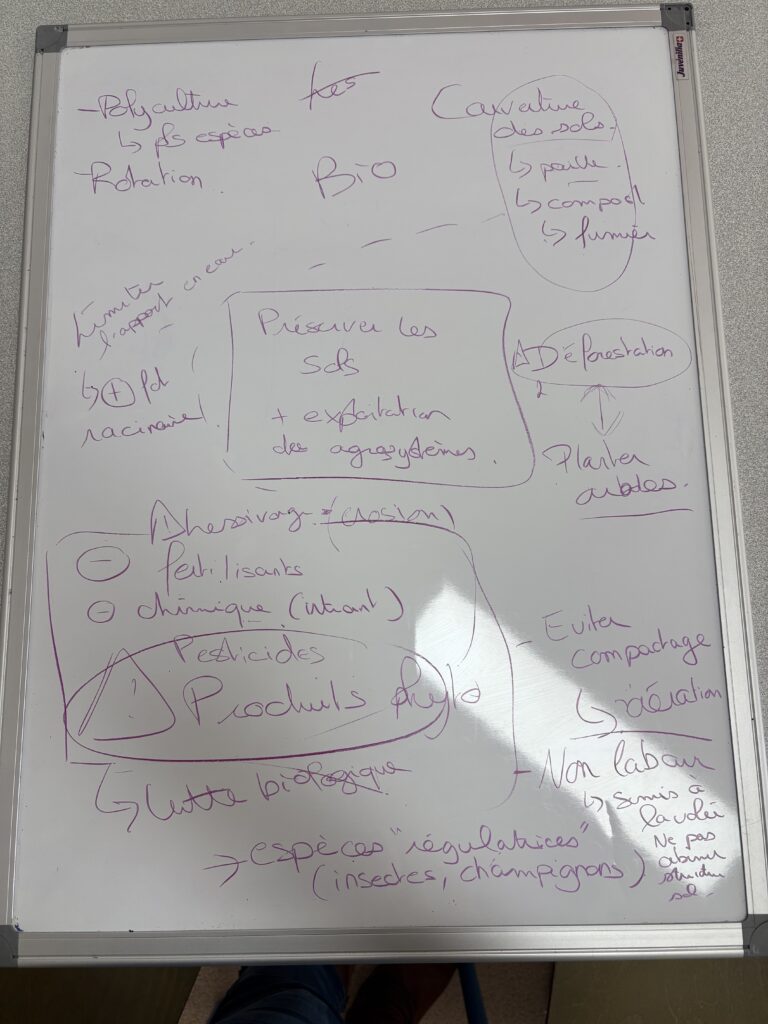 Juvénilia
- Polyculture
↳ pls espèces
- Rotation.
Bio
Couverture
des sols.
↳ paille.
↳ compost
↳ fumier
Limiter
l'apport en eau.
↳ ⊕ pdt
racinaire
Préserver les
sols
+ exploitation
des agrosystèmes.
⚠ Déforestation
Planter
arbres.
⚠ lessivage (érosion)
⊖ fertilisants
⊖ chimique (intrant)
Pesticides
⚠ Produits phyto
↳ Lutte biologique
→ espèces "régulatrices"
(insectes, champignons)
- Eviter
compactage
↳ aération
- Non labour
↳ Semis à
la volée
Ne pas
abimer
structure
sol.